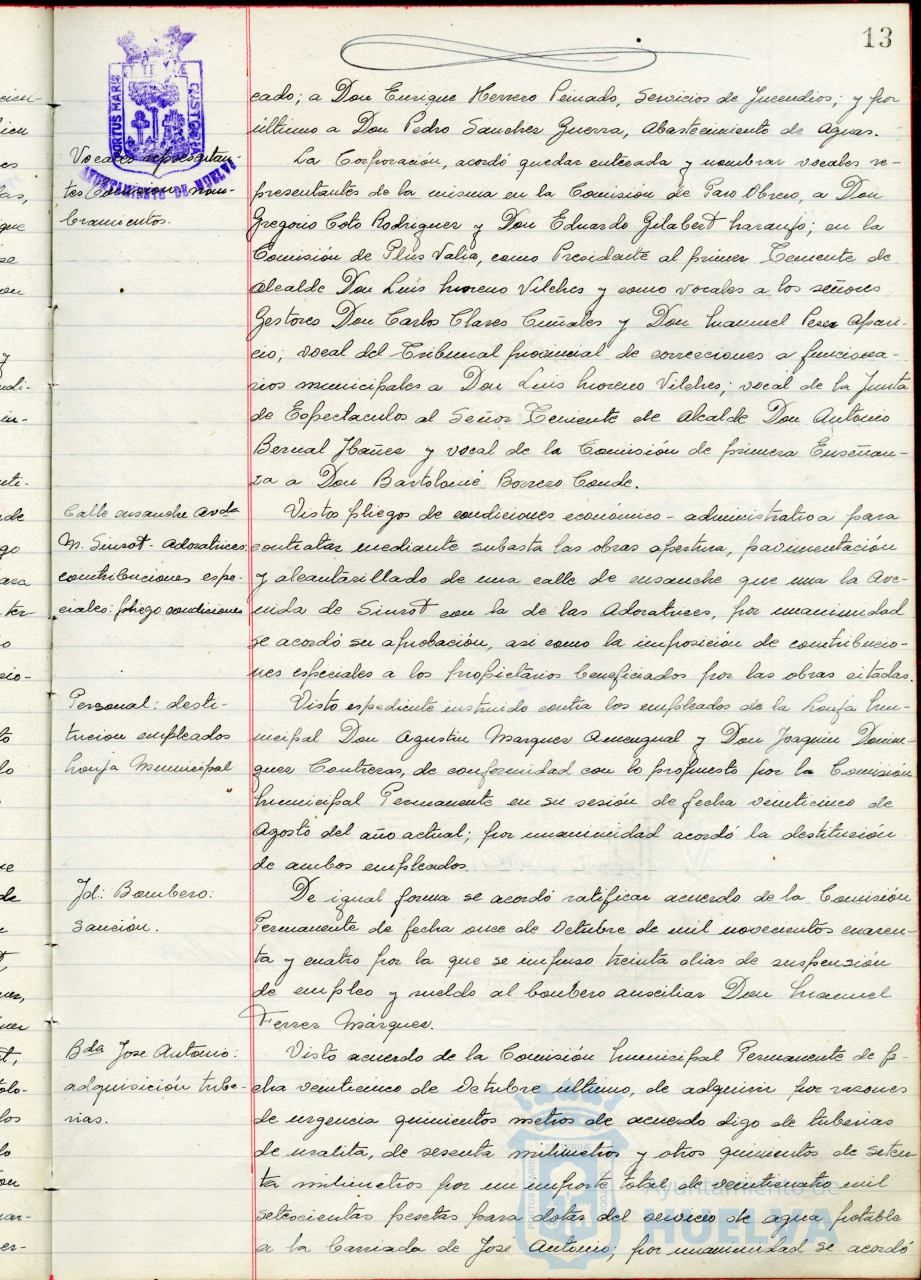 13
PORTUS MARIS
ET TERRE
CUSTODIA
AYUNTAMIENTO DE HUELVA
cado; a Don Enrique Herrero Peinado, Servicios de Incendios; y por
último a Don Pedro Sanchez Guerra, Abastecimiento de Aguas.
Vocales representan-
tes Comision, nom-
bramientos.
La Corporación, acordó quedar enterada y nombrar vocales re-
presentantes de la misma en la Comisión de Paro Obrero, a Don
Gregorio Coto Rodriguez y Don Eduardo Gilabert Naranjo; en la
Comisión de Plus Valia, como Presidente al primer Teniente de
alcalde Don Luis Moreno Vilches y como vocales a los señores
Gestores Don Carlos Clares Cuñales y Don Manuel Perez Apari-
cio; vocal del Tribunal provincial de correcciones a funciona-
rios municipales a Don Luis Moreno Vilches; vocal de la Junta
de Espectaculos al Señor Teniente de Alcalde Don Antonio
Bernal Ibañez y vocal de la Comisión de primera Enseñan-
za a Don Bartolomé Borrero Conde.
Calle ensanche Avda
M. Siurot - Adoratrices:
contribuciones espe-
ciales: pliego condiciones
Vistos pliegos de condiciones económico-administrativa para
contratar mediante subasta las obras apertura, pavimentación
y alcantarillado de una calle de ensanche que una la Ave-
nida de Siurot con la de las Adoratrices, por unanimidad
se acordó su aprobación, asi como la imposición de contribucio-
nes especiales a los propietarios beneficiados por las obras citadas.
Personal: desti-
tucion empleados
Lonja Municipal
Visto expediente instruido contra los empleados de la Lonja Mu-
nicipal Don Agustin Marquez Amengual y Don Joaquin Domin-
guez Contreras, de conformidad con lo propuesto por la Comisión
Municipal Permanente en su sesión de fecha veinticinco de
Agosto del año actual; por unanimidad acordó la destitución
de ambos empleados.
Id: Bombero:
sanción.
De igual forma se acordó ratificar acuerdo de la Comisión
Permanente de fecha once de Octubre de mil novecientos cuaren-
ta y cuatro por la que se impuso treinta dias de suspensión
de empleo y sueldo al bombero auxiliar Don Manuel
Ferrer Márquez.
Bda Jose Antonio:
adquisición tube-
rias.
Visto acuerdo de la Comisión Municipal Permanente de fe-
cha veinticinco de Octubre último, de adquirir por razones
de urgencia quinientos metros de acuerdo digo de tuberias
de uralita, de sesenta milimetros y otros quinientos de seten-
ta milimetros por un importe total de veinticuatro mil
setecientas pesetas para dotar del servicio de agua potable
a la barriada de José Antonio; por unanimidad se acordó
Ayuntamiento de
HUELVA